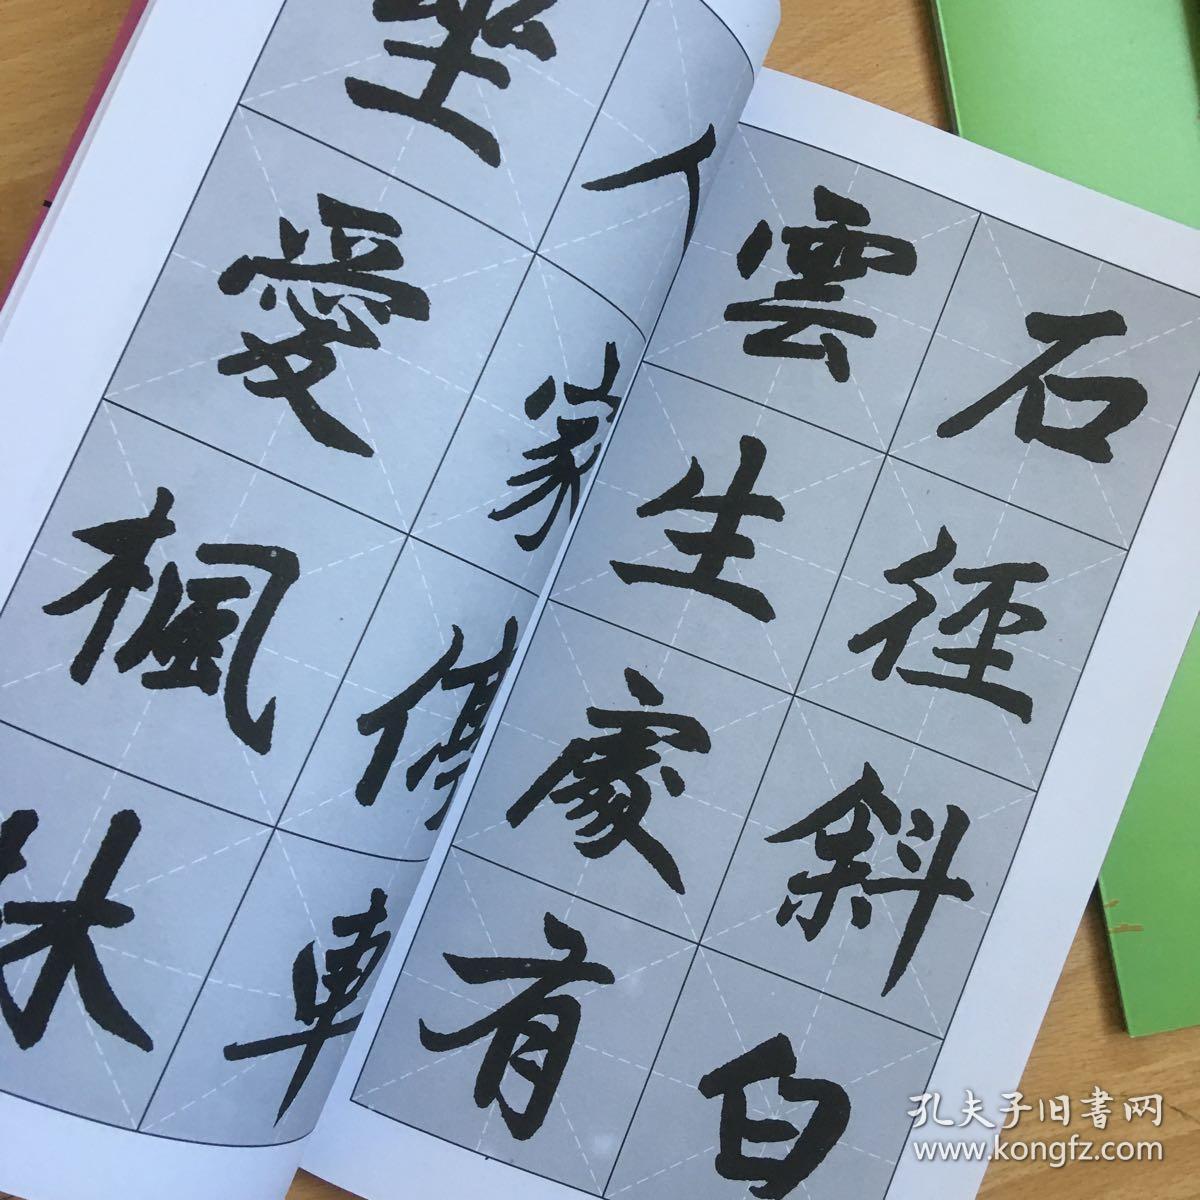 石徑斜白
雲生處有
人家停車
坐愛楓林
孔夫子旧書网
www.kongfz.com